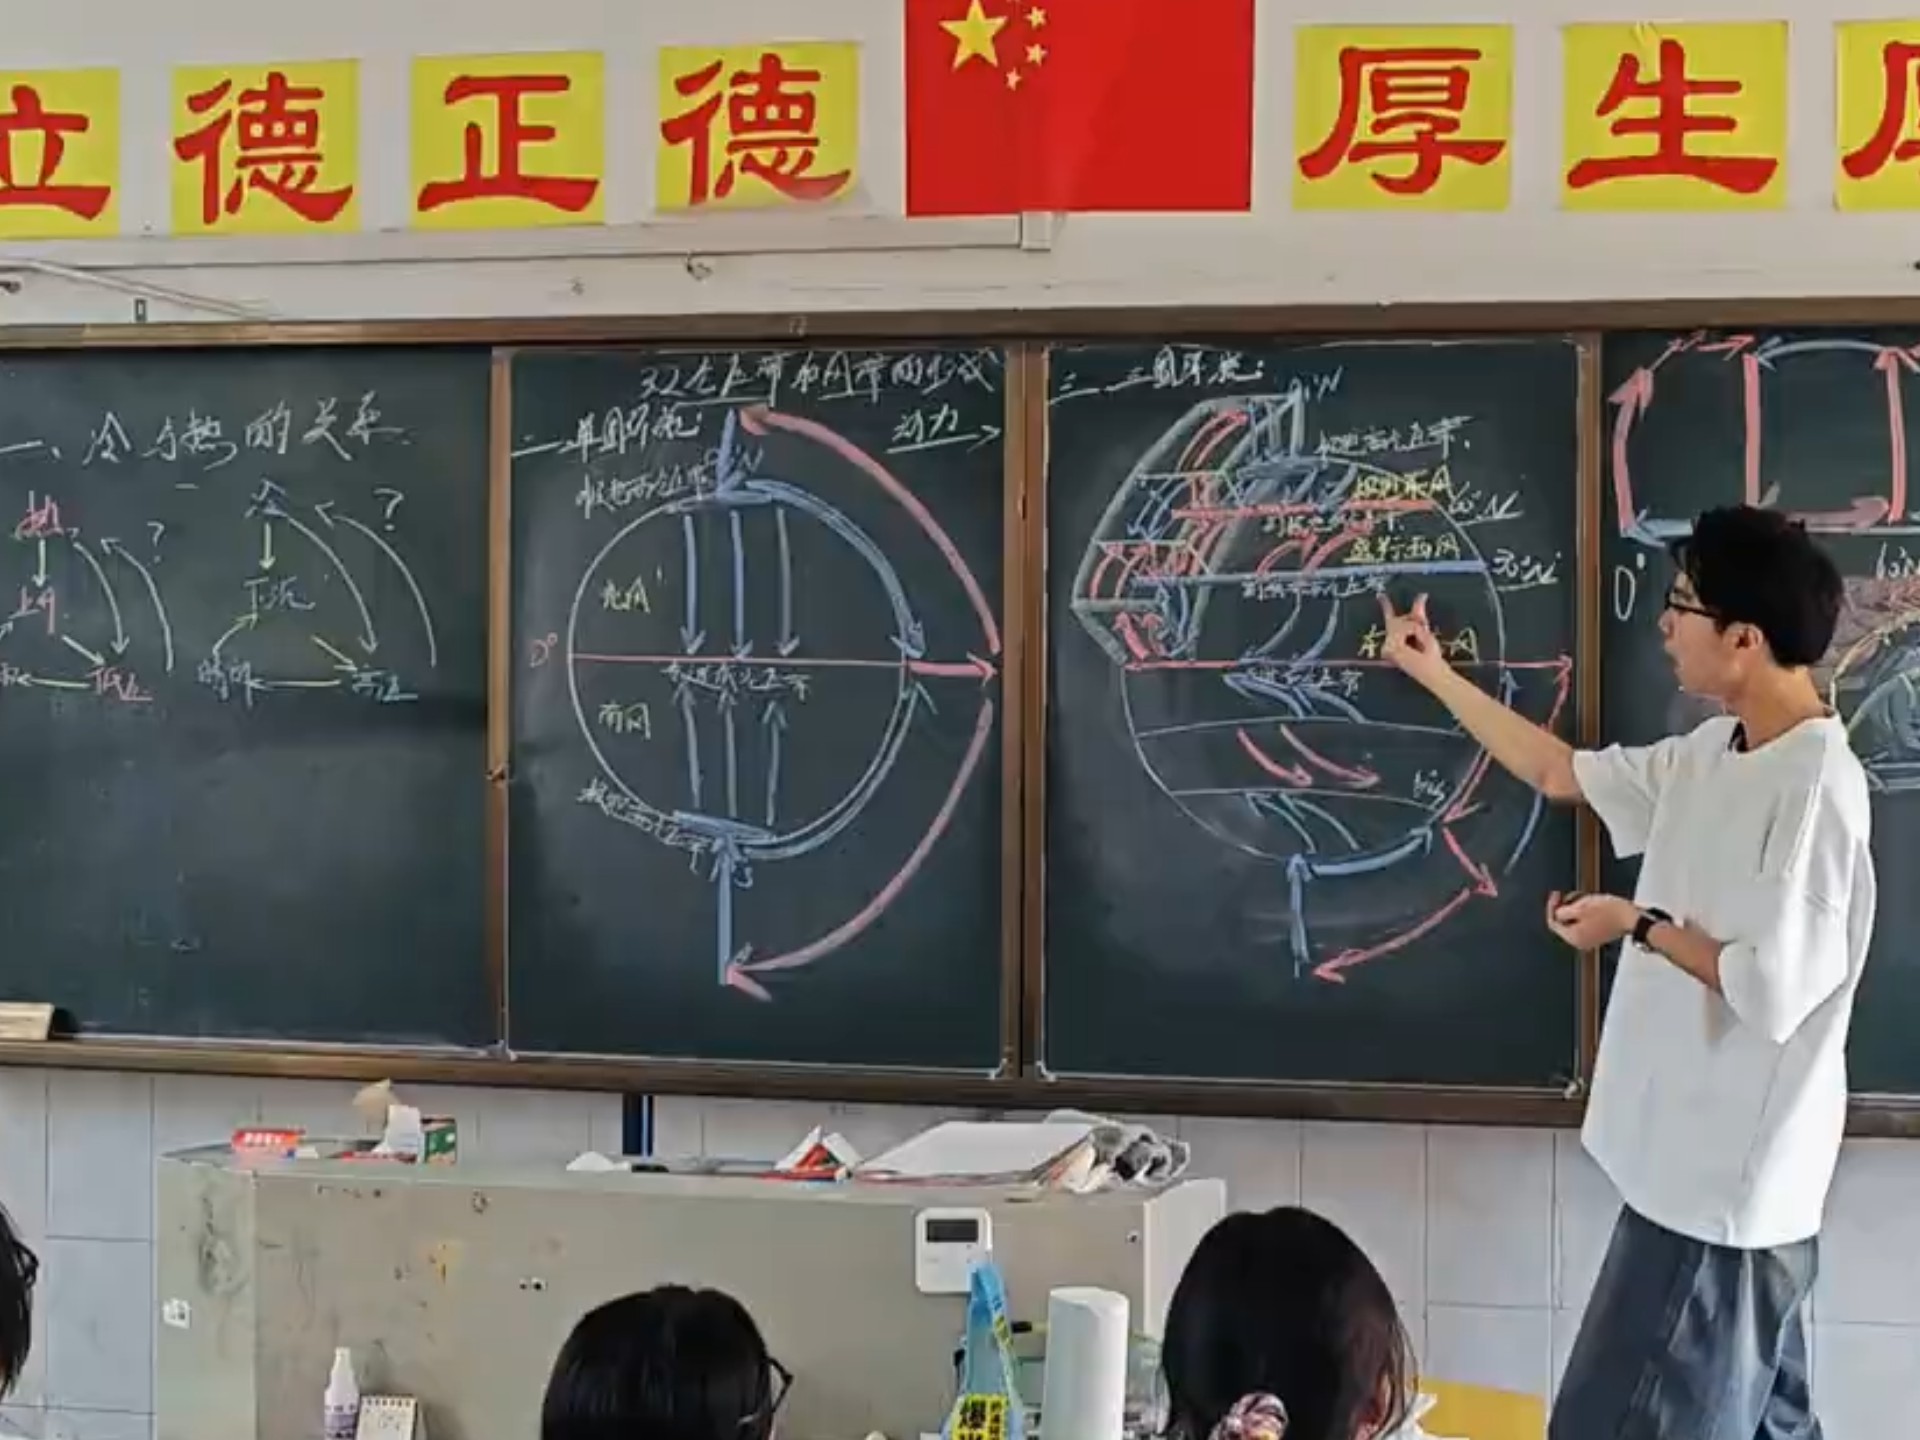 立德正德 厚生
一、冷与热的关系
热
?
上升
低压
冷
?
下沉
高压
3.2 气压带和风带的形成
二、单圈环流:
动力
N
极地高气压带
北风
0°
赤道低气压带
南风
极地高气压带
S
三、三圈环流:
N
极地高气压带
极地东风
60°N
盛行西风
30°N
赤道低气压带
60°S
0°
爆